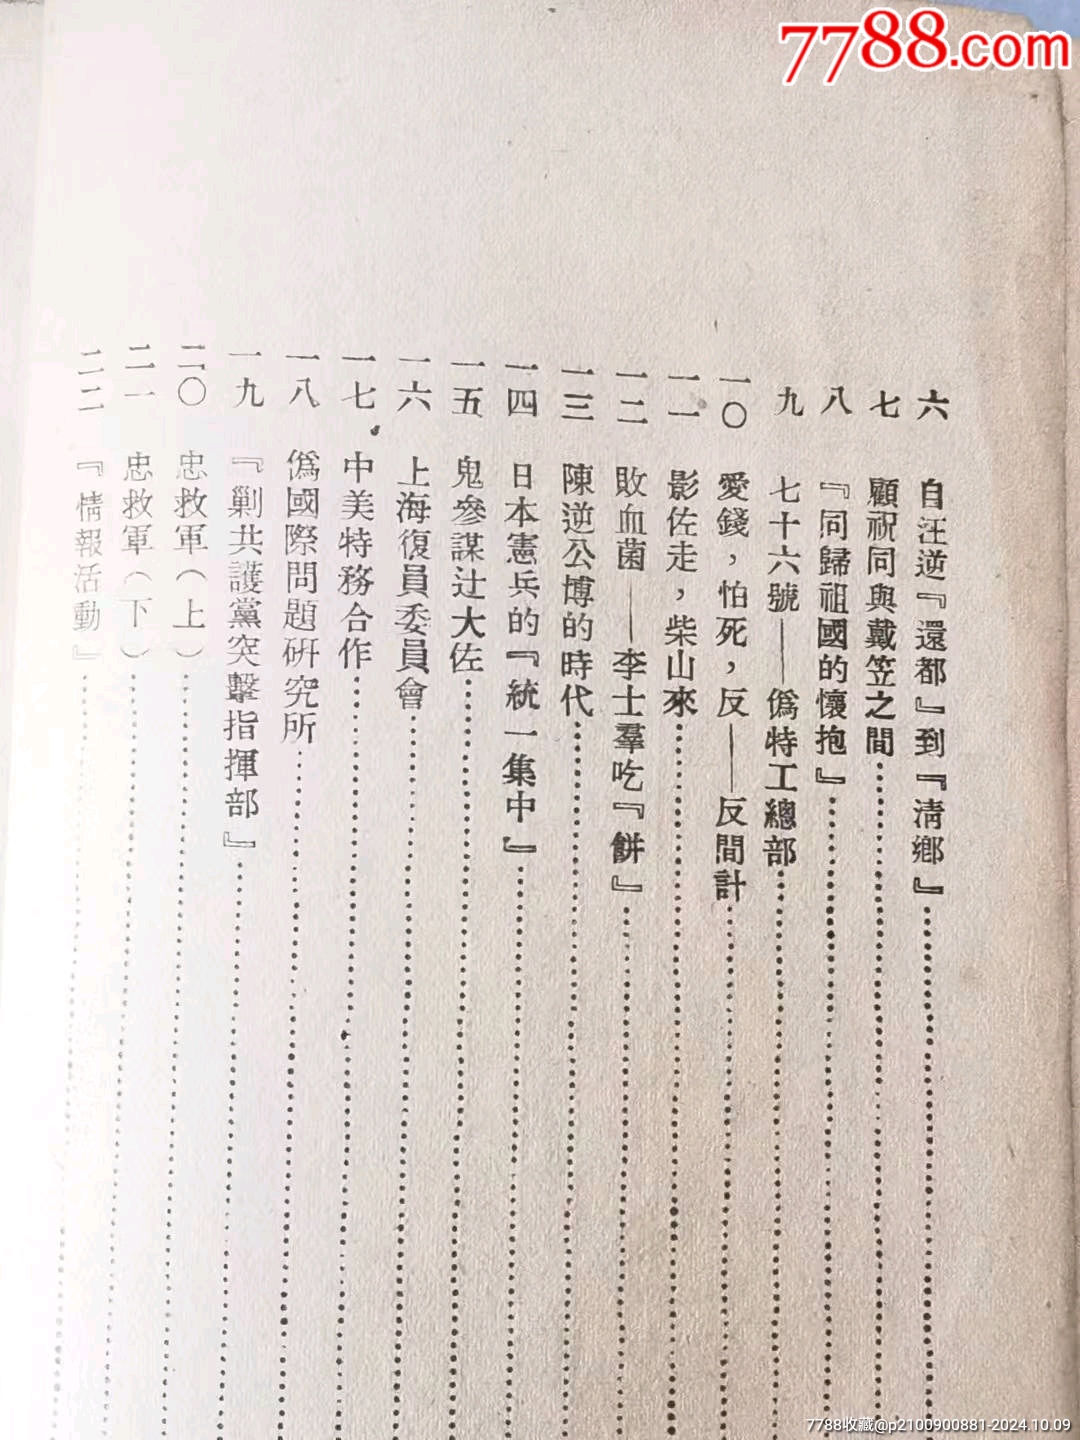 7788.com
六 自汪逆『還都』到『淸鄕』
七 顧祝同與戴笠之間
八 『同歸祖國的懷抱』
九 七十六號——僞特工總部
一〇 愛錢，怕死，反——反間計
一一 影佐走，柴山來
一二 敗血菌——李士羣吃『餅』
一三 陳逆公博的時代
一四 日本憲兵的『統一集中』
一五 鬼參謀辻大佐
一六 上海復員委員會
一七 中美特務合作
一八 僞國際問題研究所
一九 『剿共護黨突擊指揮部』
二〇 忠救軍（上）
二一 忠救軍（下）
二二 『情報活動』
7788收藏@p2100900881-2024.10.09